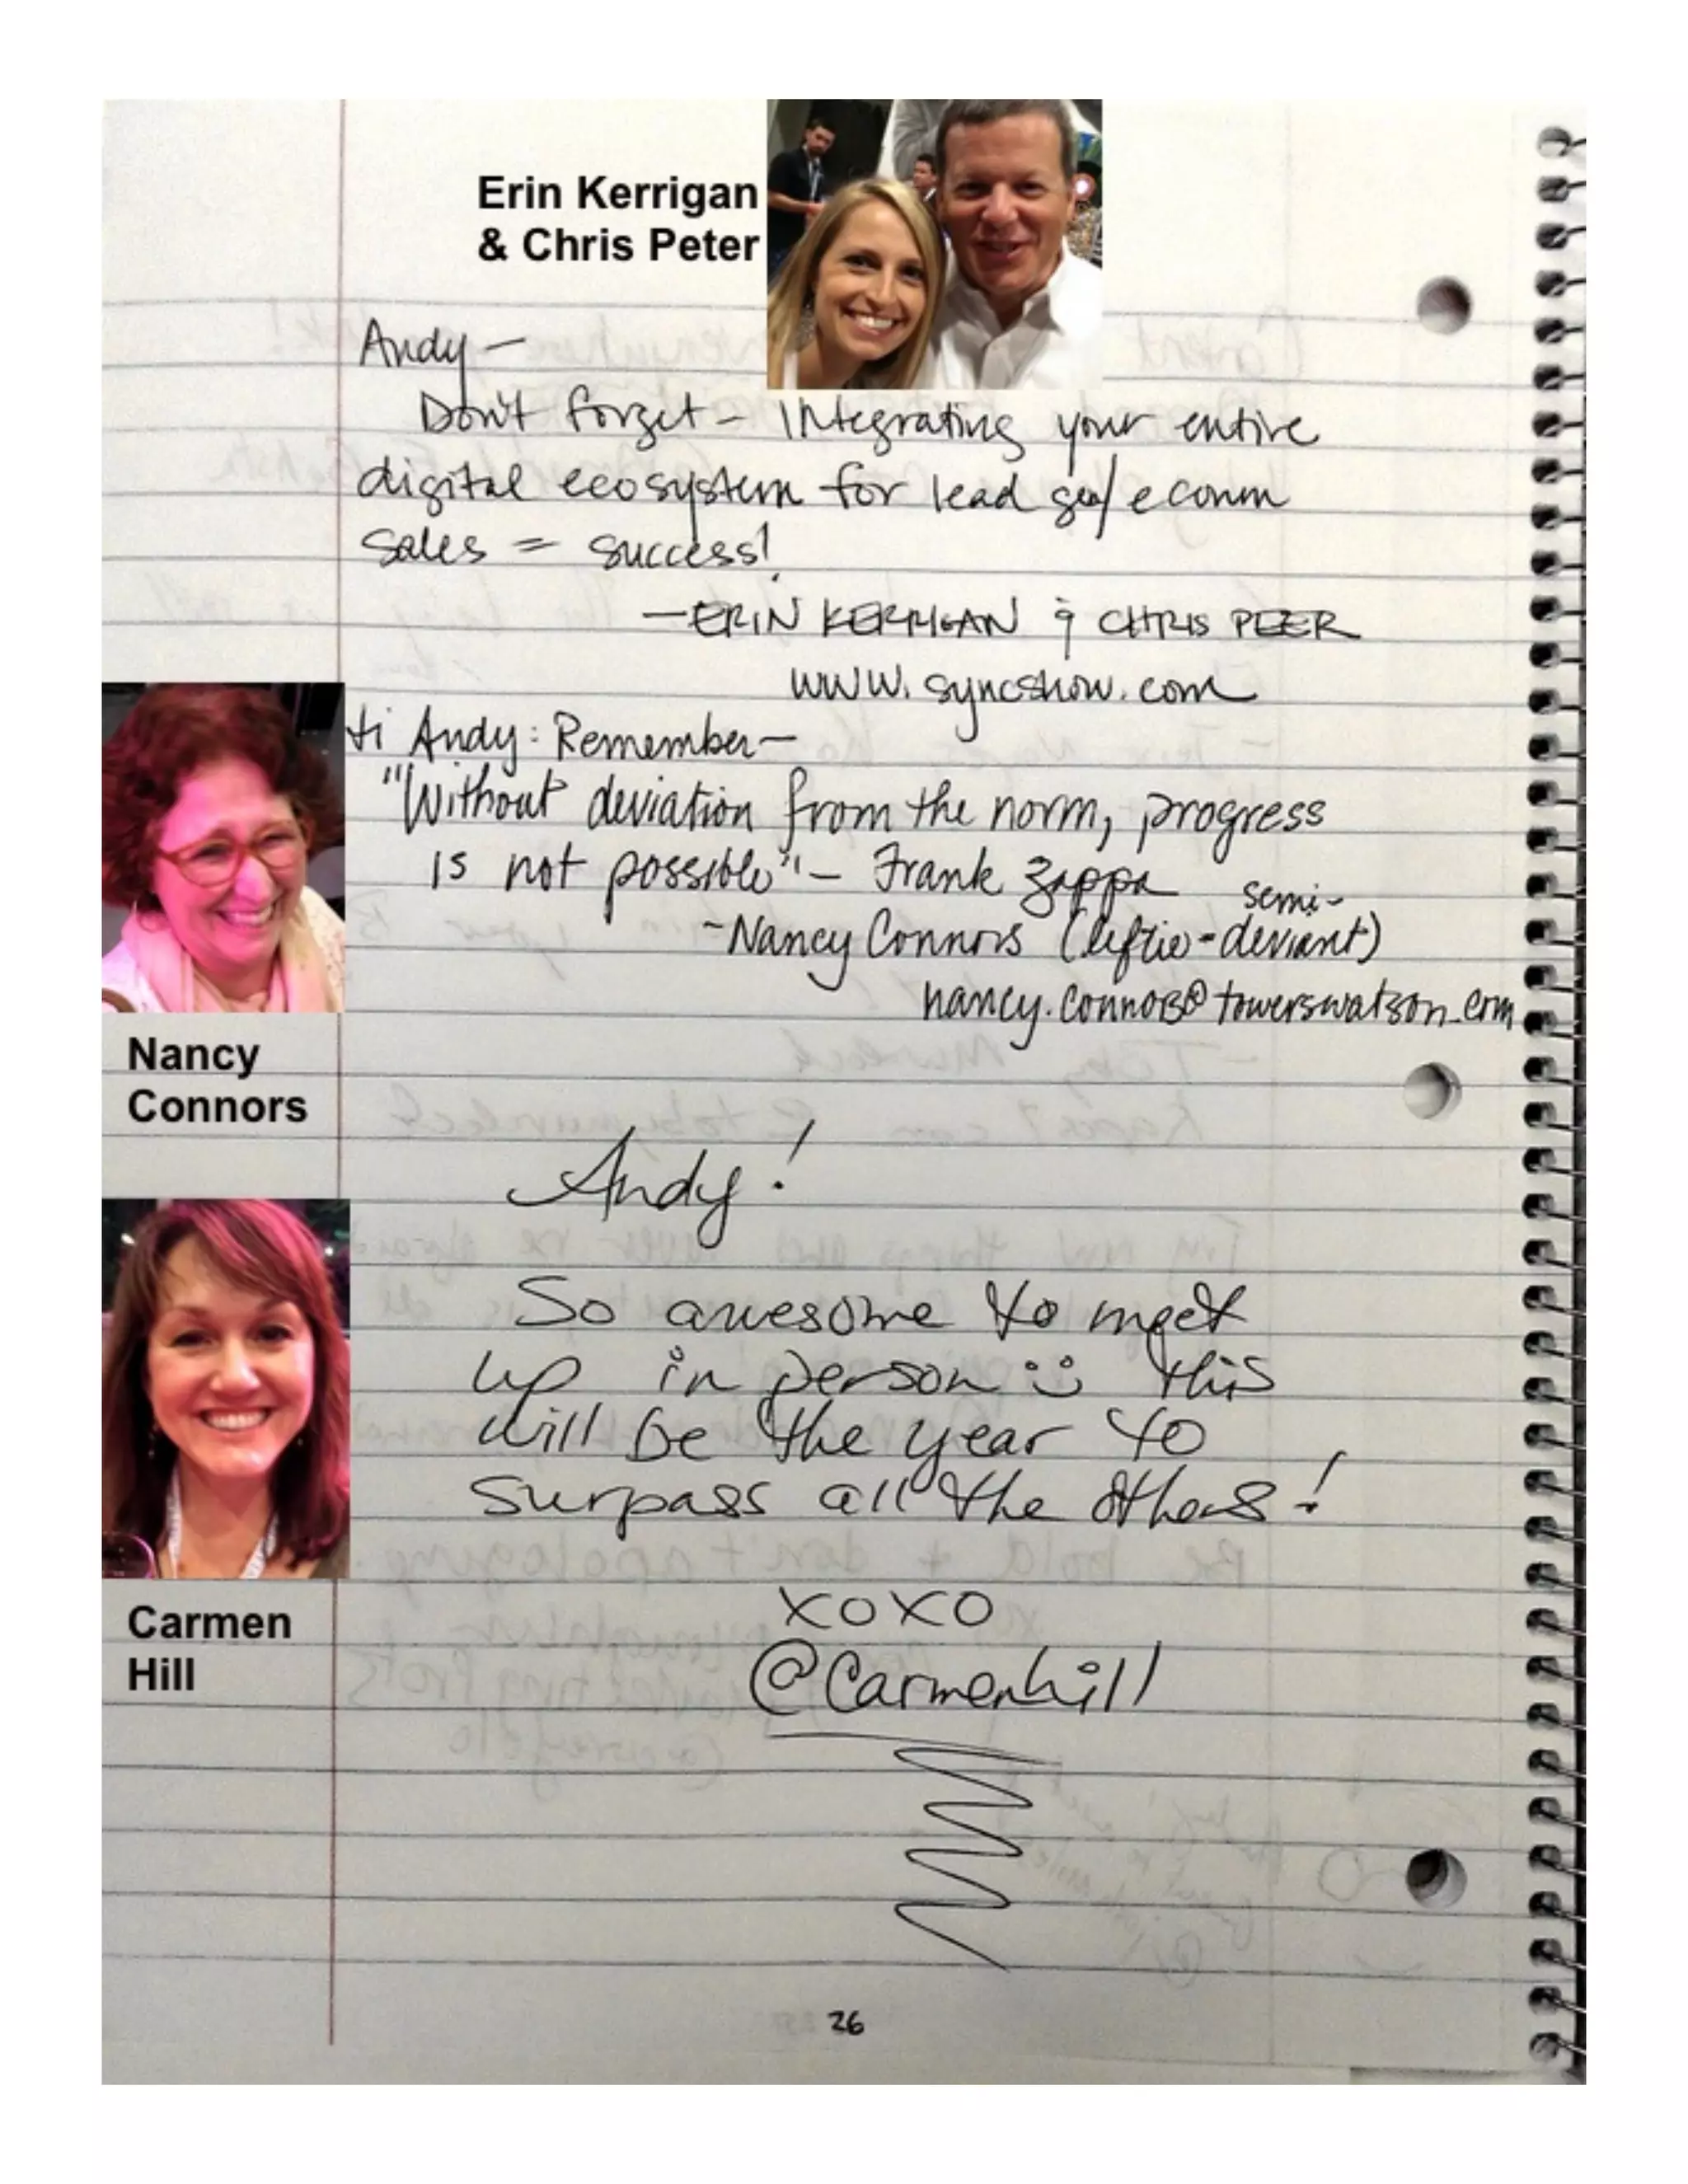 Erin Kerrigan
& Chris Peter
Andy —
Don't forget — Integrating your entire
digital ecosystem for lead gen/ecomm
sales = success!
— ERIN KERRIGAN & CHRIS PEER
www.syncshow.com
Hi Andy: Remember —
"Without deviation from the norm, progress
is not possible" — Frank Zappa
semi-
- Nancy Connors (leftie - deviant)
nancy.connors@towerswatson.com
Nancy
Connors
Andy!
So awesome to meet
up in person :) this
will be the year to
surpass all the others!
xoxo
@Carmenhill
Carmen
Hill
26